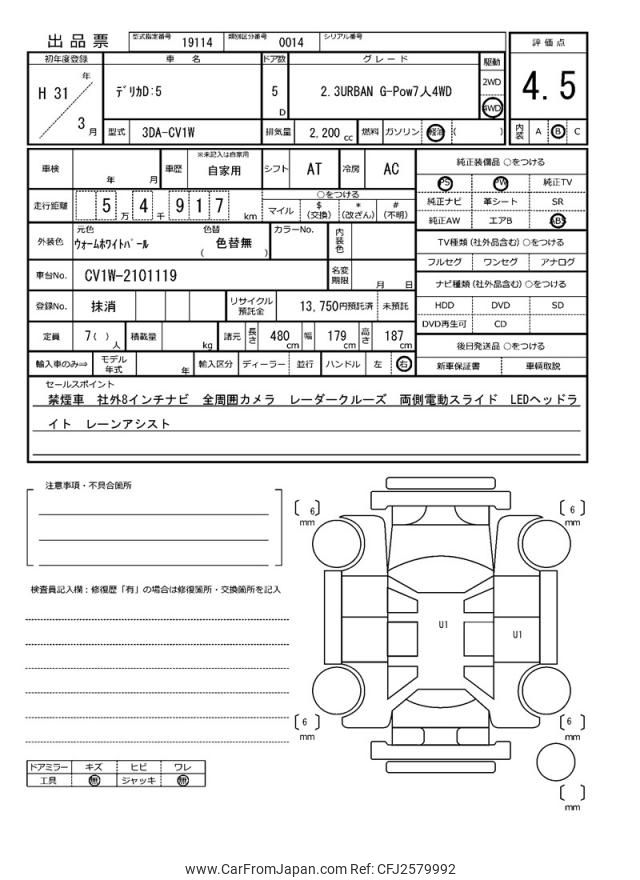 出品票 型式指定番号 19114 類別区分番号 0014 シリアル番号
評価点
4.5
内装 A B C
初年度登録 車名 ドア数 グレード 駆動
H 31 年 3 月
デリカD:5 5 D 2.3URBAN G-Pow7人4WD 2WD 4WD
型式 3DA-CV1W 排気量 2,200 cc 燃料 ガソリン 軽油 ( )
車検 年 月 車歴 ※未記入は自家用 自家用 シフト AT 冷房 AC
走行距離 5 万 4 千 9 1 7 km
○をつける
マイル $(交換) *(改ざん) #(不明)
外装色 元色 ウォームホワイトパール 色替 ( 色替無 ) カラーNo. 内装色
車台No. CV1W-2101119 名変期限 月 日
登録No. 抹消 リサイクル預託金 13,750円預託済 未預託
定員 7( ) 人 積載量 kg 諸元 長さ 480 cm 幅 179 cm 高さ 187 cm
輸入車のみ⇒ モデル年式 年 輸入区分 ディーラー 並行 ハンドル 左 右
純正装備品 ○をつける
PS PW 純正TV
純正ナビ 革シート SR
純正AW エアB ABS
TV種類(社外品含む)○をつける
フルセグ ワンセグ アナログ
ナビ種類(社外品含む)○をつける
HDD DVD SD
DVD再生可 CD
後日発送品 ○をつける
新車保証書 車輌取説
セールスポイント
禁煙車 社外8インチナビ 全周囲カメラ レーダークルーズ 両側電動スライド LEDヘッドラ
イト レーンアシスト
注意事項・不具合箇所
検査員記入欄:修復歴「有」の場合は修復箇所・交換箇所を記入
ドアミラー キズ ヒビ ワレ
工具 無 ジャッキ 無
[ 6 ] mm
[ 6 ] mm
U1
U1
[ 6 ] mm
[ 6 ] mm
[ ] mm
www.CarFromJapan.com Ref: CFJ2579992